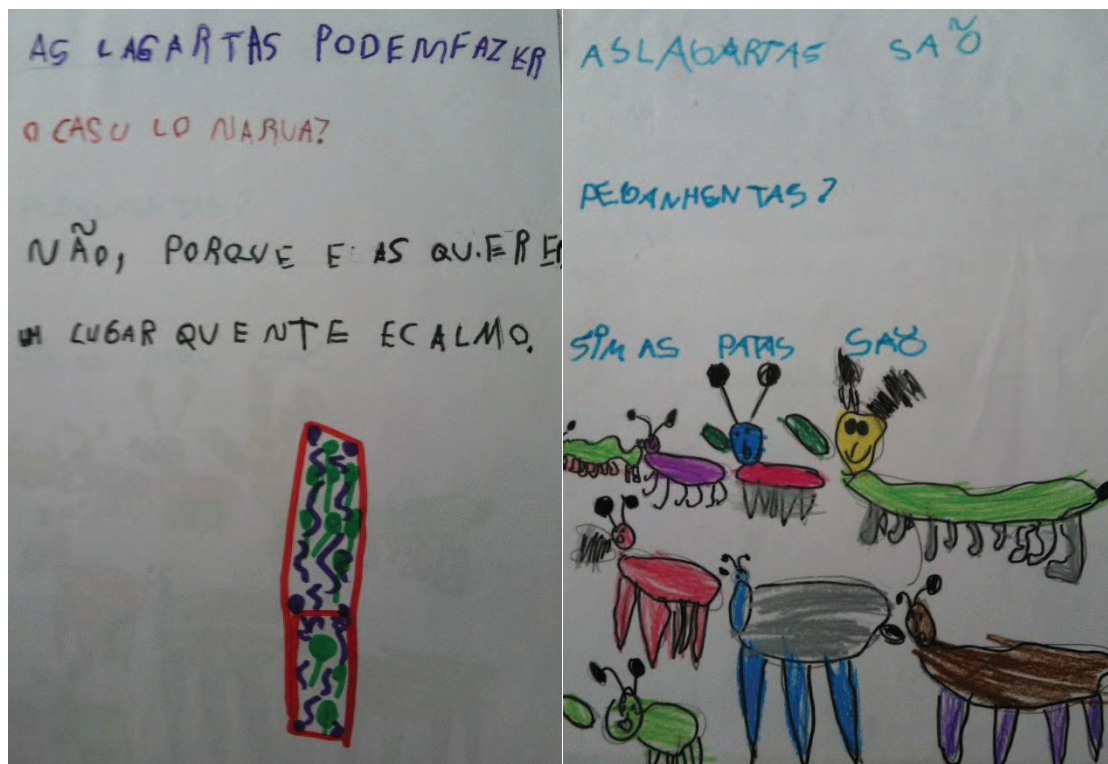 AS LAGARTAS PODEMFAZER
O CASU LO NARUA?
NÃO, PORQUE E AS QU.EREM
UM LUGAR QUENTE ECALMO.
ASLAGARTAS SAÕ
PEGANHENTAS?
SIM AS PATAS SAÕ